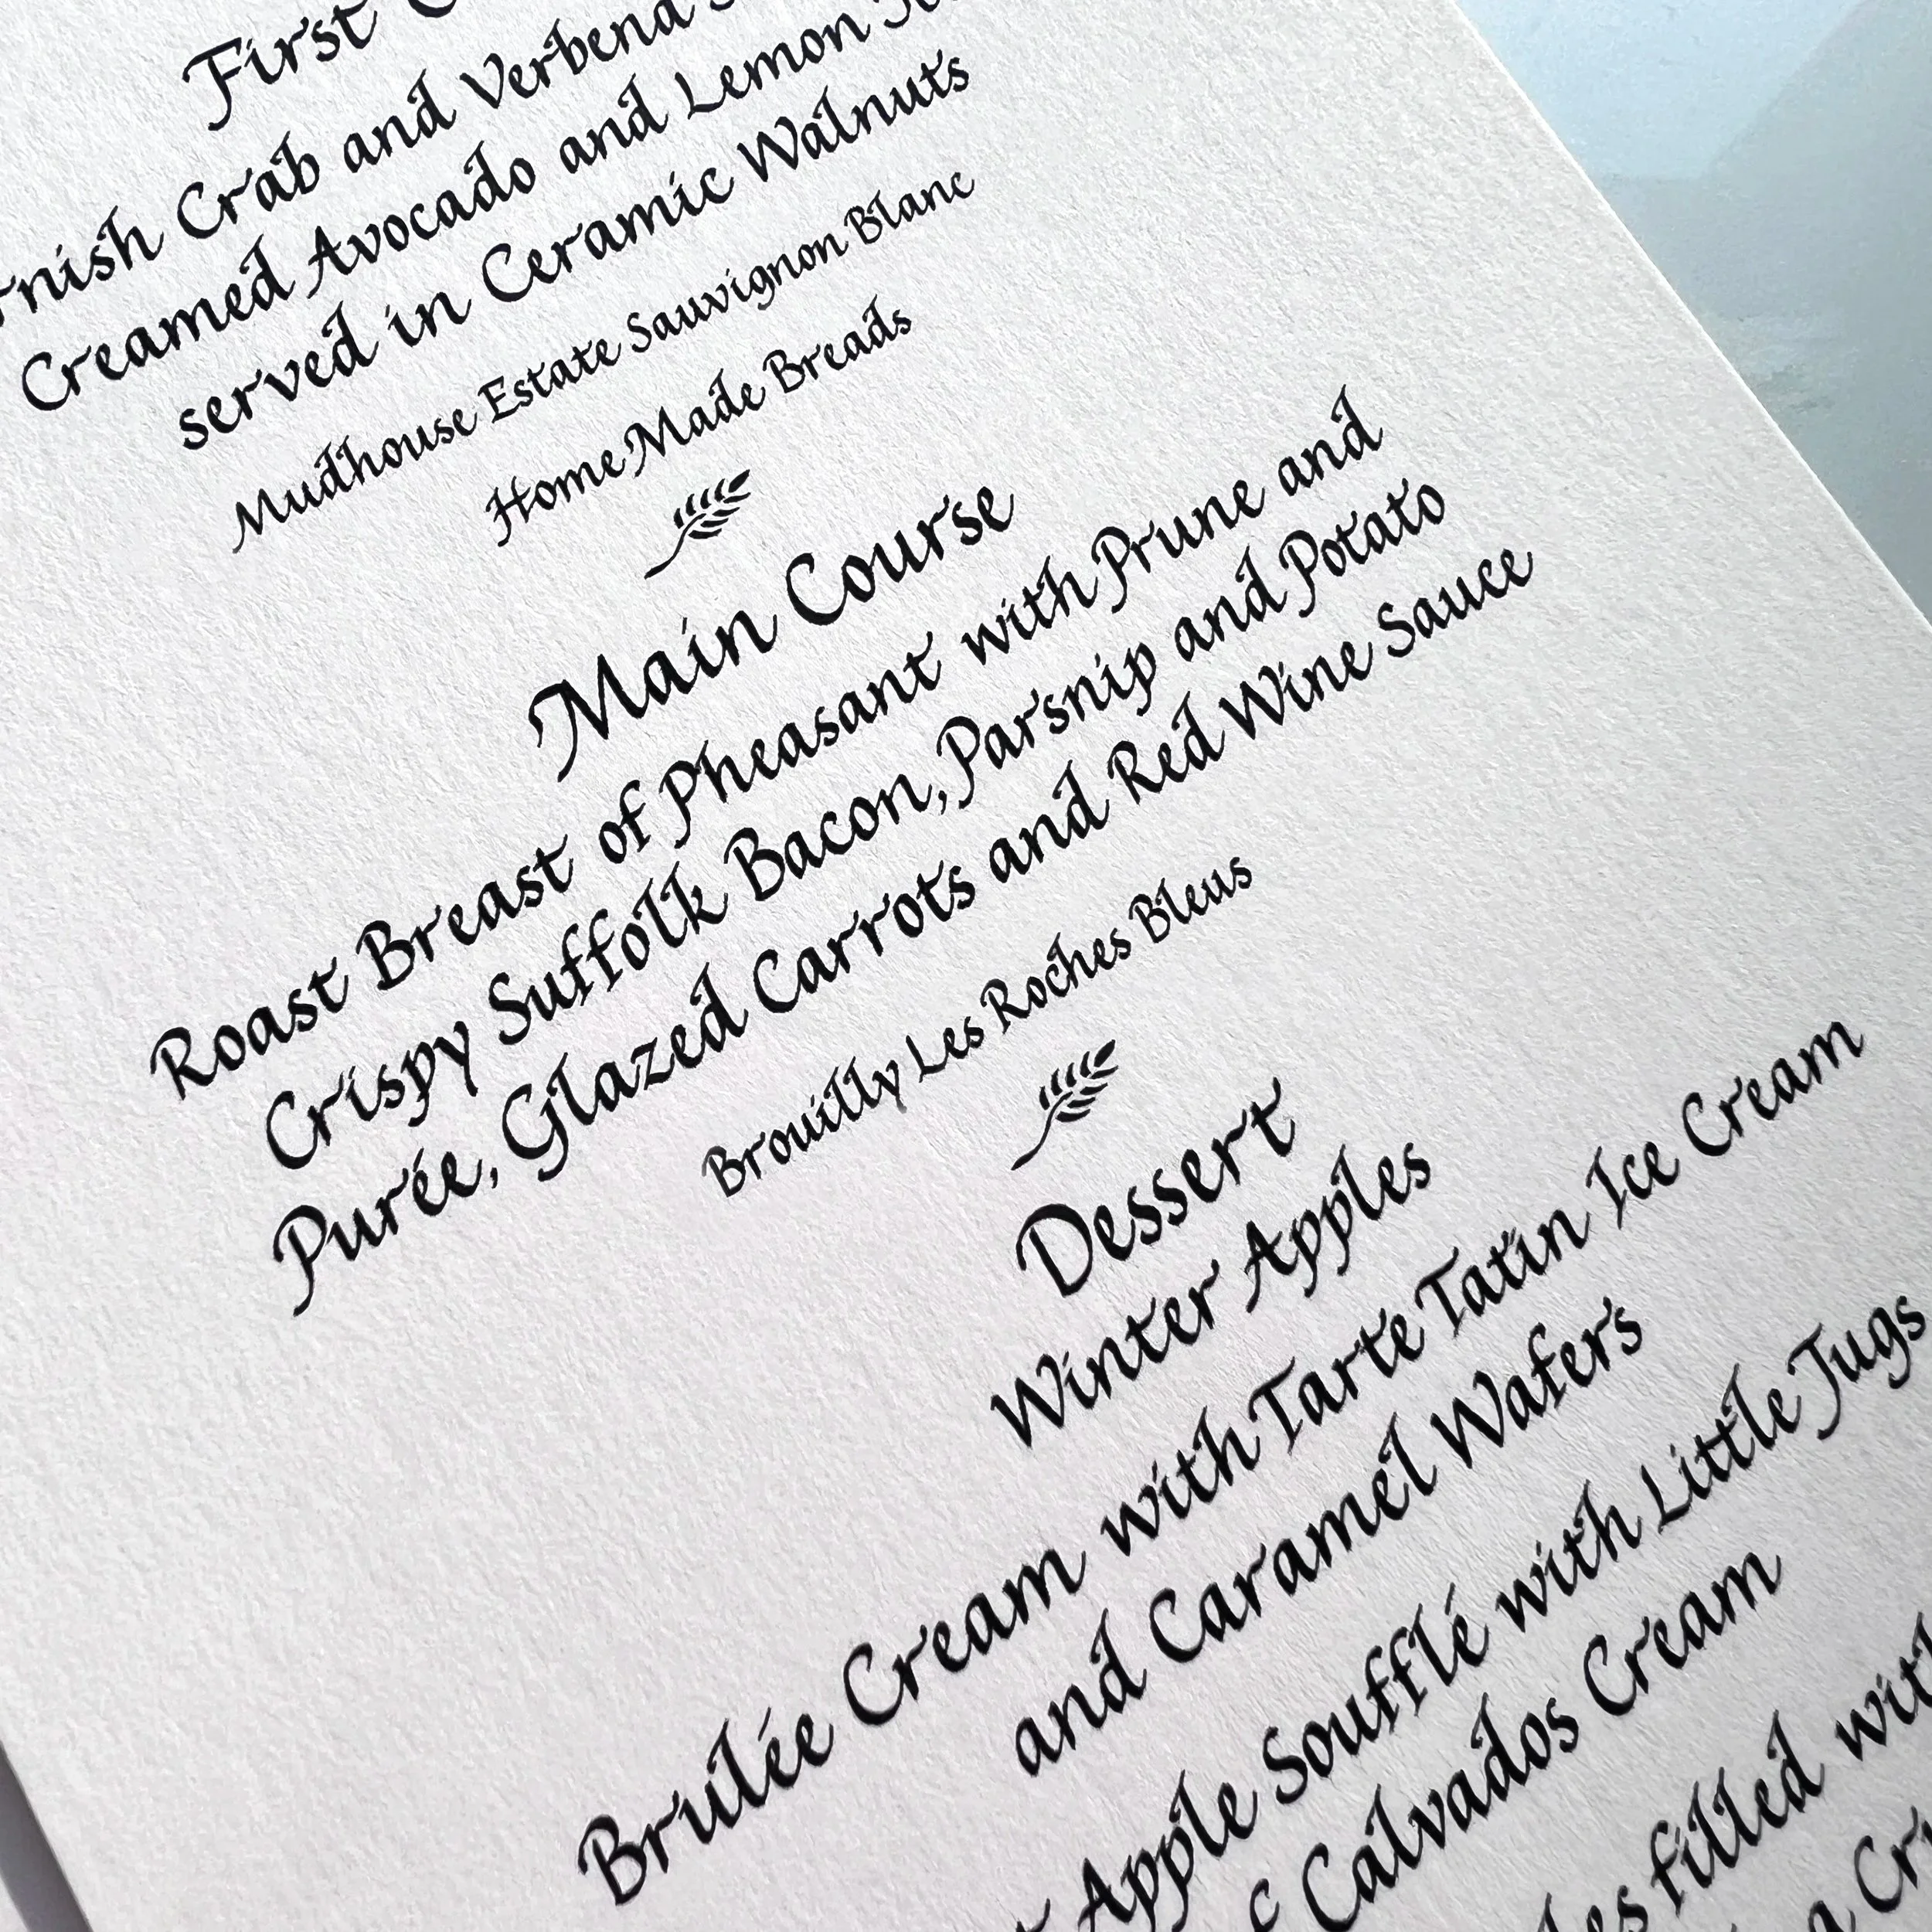 First
Crab and Verbena
Creamed Avocado and Lemon
served in Ceramic Walnuts
Mudhouse Estate Sauvignon Blanc
Home Made Breads
Main Course
Roast Breast of Pheasant with Prune and
Crispy Suffolk Bacon, Parsnip and Potato
Purée, Glazed Carrots and Red Wine Sauce
Brouilly Les Roches Bleus
Dessert
Winter Apples
Brulée Cream with Tarte Tatin Ice Cream
and Caramel Wafers
Apple Soufflé with Little Jugs
Calvados Cream
filled